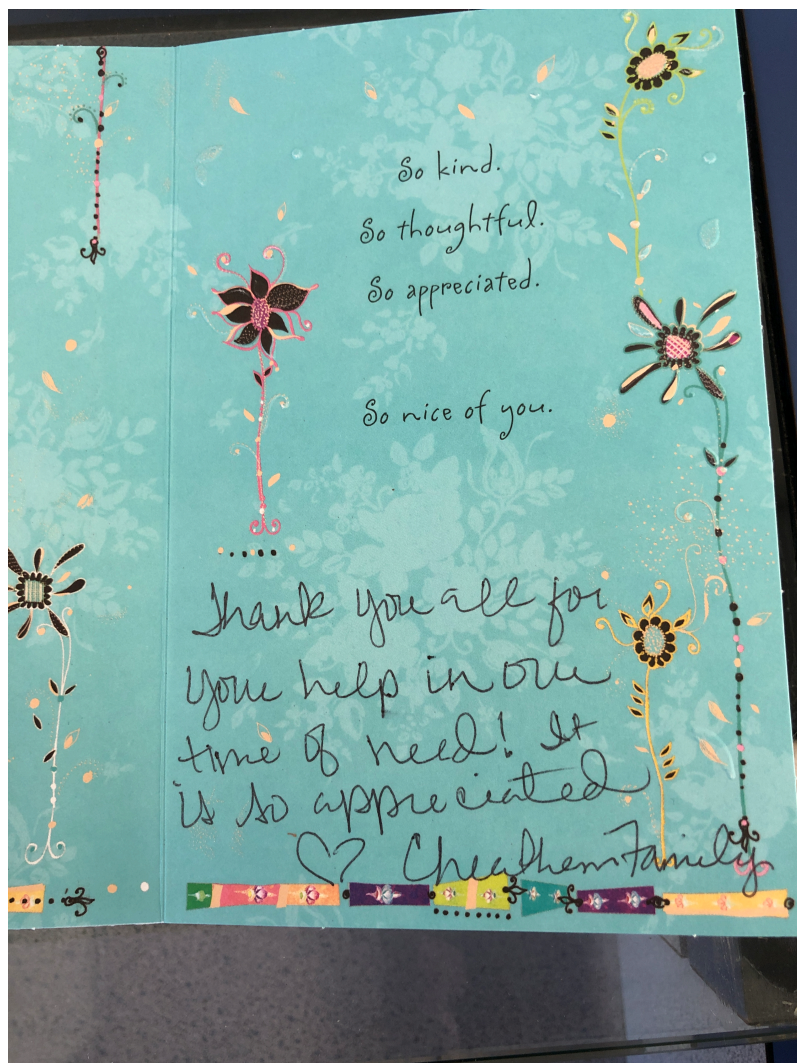 So kind.
So thoughtful.
So appreciated.
So nice of you.
Thank you all for
your help in our
time of need! It
is so appreciated
♡ Cheathem Family